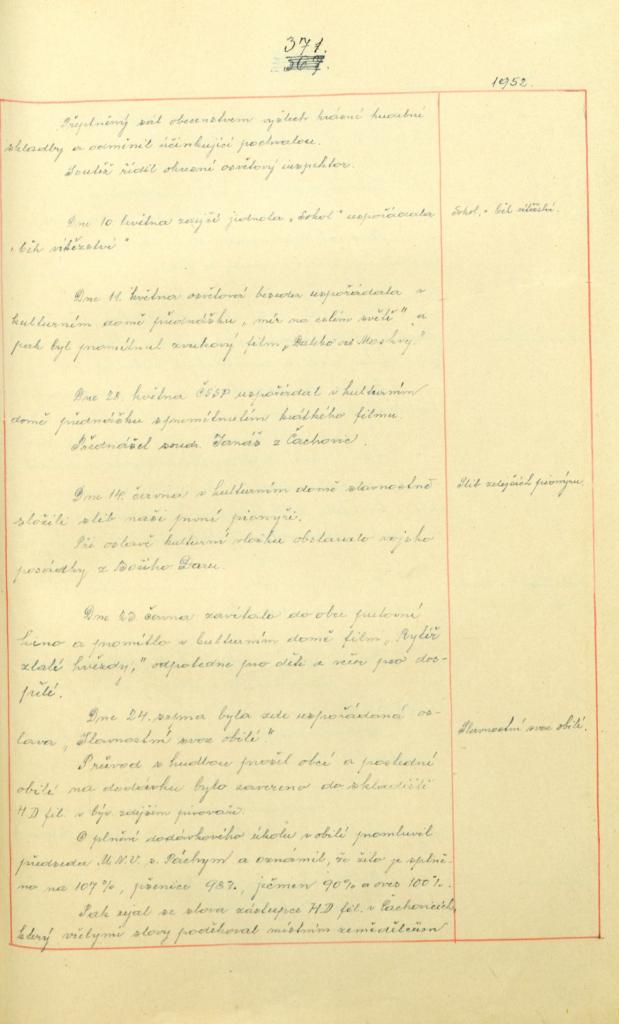 371.
367.
1952.
Přeplněný sál obecenstvem vyslech krásné hudební
skladby a odměnil účinkující pochvalou.
Soutěž řídil okresní osvětový inspektor.
Dne 10. května zdejší jednota „Sokol" uspořádala
„běh vítězství"
Sokol, „běh vítězství.
Dne 11. května osvětová beseda uspořádala v
kulturním domě přednášku „mír na celém světě" a
pak byl promítnut zvukový film „Daleko od Moskvy."
Dne 28. května ČSSP uspořádal v kulturním
domě přednášku s promítnutím krátkého filmu.
Přednášel soudr. Tanáš z Čachovic.
Dne 14. června v kulturním domě slavnostně
složili slib naši první pionýři.
Slib zdejších pionýru.
Při oslavě kulturní vložku obstaralo vojsko
posádky z Božího Daru.
Dne 23. června zavítalo do obce putovní
kino a promítlo v kulturním domě film „Rytíř
zlaté hvězdy," odpoledne pro děti a večer pro dos-
pělé.
Dne 24. srpna byla zde uspořádaná os-
lava „Slavnostní svoz obilí"
Slavnostní svoz obilí.
Průvod s hudbou prošel obcí a poslední
obilí na dodávku bylo zavezeno do skladiště
H.D fil. v býv. zdejším pivovaře.
O plnění dodávkového úkolu v obilí promluvil
předseda M.N.V. s. Páchym a oznámil, že žito je splně-
no na 107%, pšenice 98%, ječmen 90% a oves 100%.
Pak ujal se slova zástupce H.D fil. v Čachovicích,
který vřelými slovy poděkoval místním zemědělcům